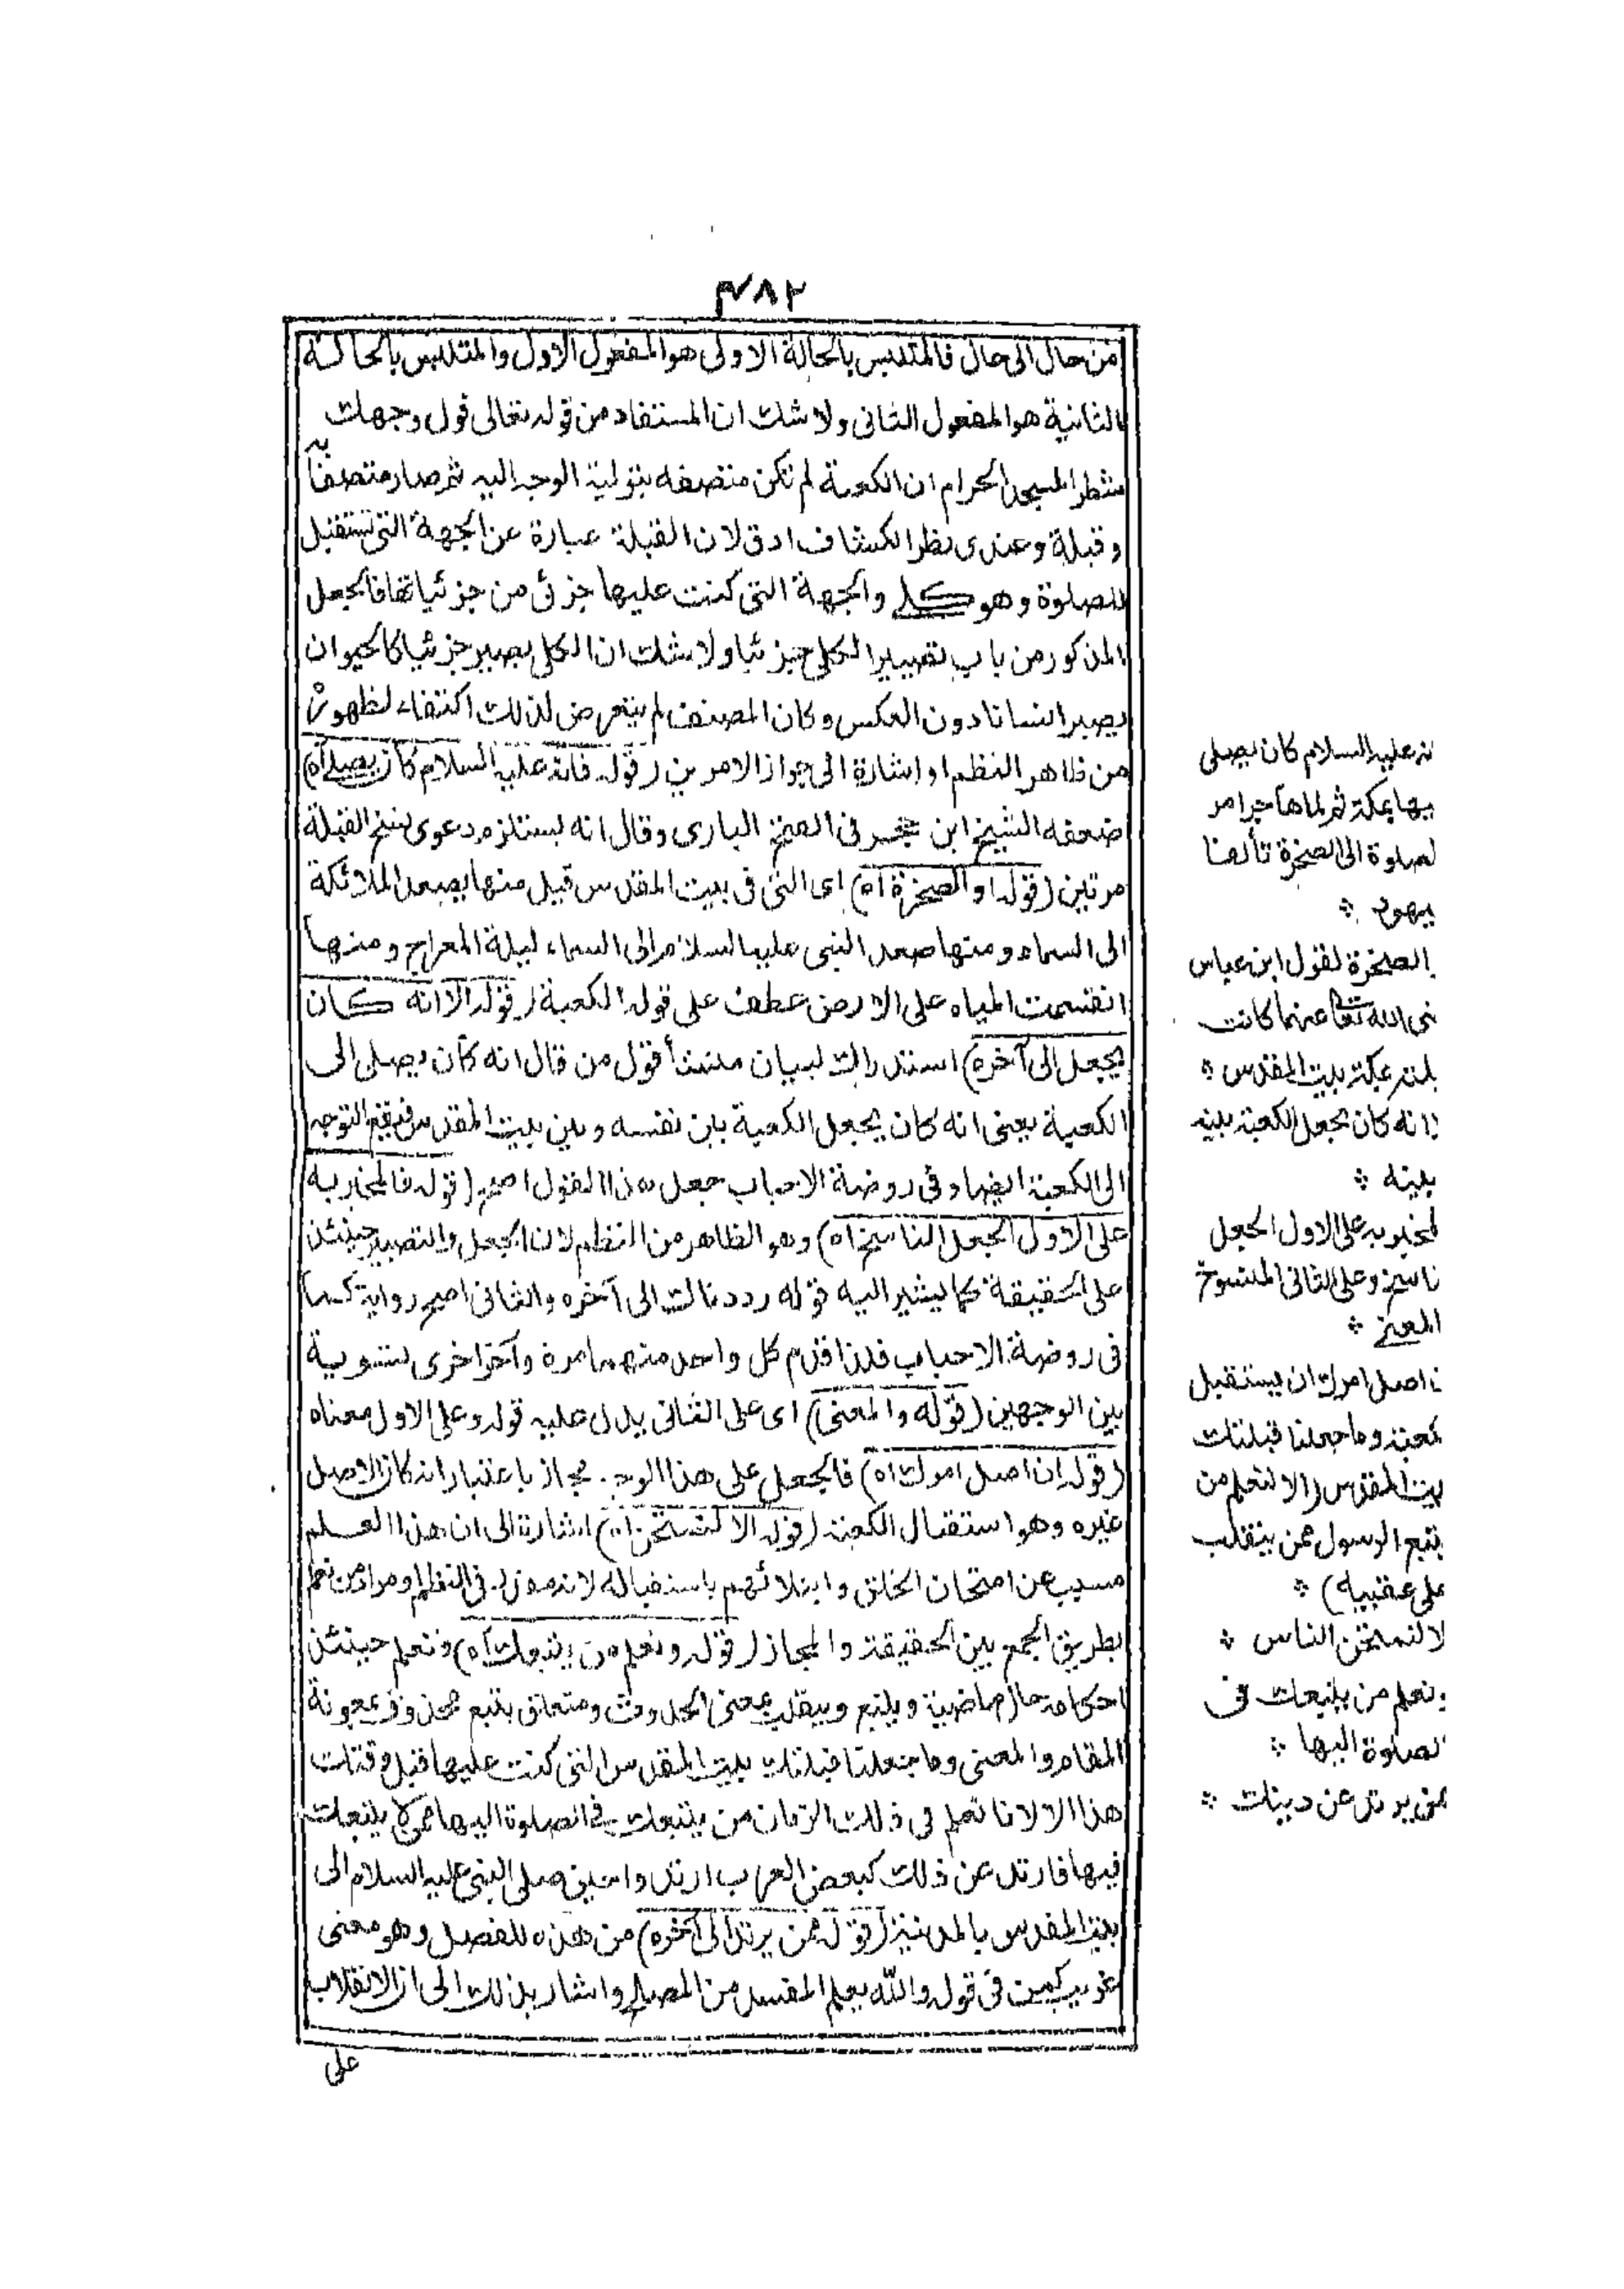 ٤٨٢
من حال الى حال فالمتلبس بالحالة الاولى هو المفعول الاول والمتلبس بالحالة
الثانية هو المفعول الثانى ولا شك ان المستفاد من قوله تعالى فول وجهك
شطر المسجد الحرام ان الكعبة لم تكن متصفه بتولية الوجه اليه ثم صار متصفا به
وقبلة وعندى نظر الكشاف ادق لان القبلة عبارة عن الجهة التى تستقبل
للصلوة وهو كلى والجهة التى كنت عليها جزئى من جزئياتها فالجعل
المذكور من باب تصيير الكلى جزئيا ولا شك ان الكلى يصير جزئيا كالحيوان
يصير انسانا دون العكس وكان المصنف لم يتعرض لذلك اكتفاء لظهوره
من ظاهر النظم او اشارة الى جواز الامرين (قوله فانه عليه السلام كان يصلى اه)
ضعفه الشيخ ابن حجر فى الفتح البارى وقال انه يستلزم دعوى نسخ القبلة
مرتين (قوله او الصخرة اه) اى التى فى بيت المقدس قيل منها يصعد الملائكة
الى السماء ومنها صعد النبى عليه السلام الى السماء ليلة المعراج ومنها
انقسمت المياه على الارض عطف على قوله الكعبة (قوله الا انه كان
يجعل الى آخره) استدراك لبيان منشأ قول من قال انه كان يصلى الى
الكعبة يعنى انه كان يجعل الكعبة بين نفسه وبين بيت المقدس فيقع التوجه
الى الكعبة ايضا وفى روضة الاحباب جعل هذا القول اصح (قوله فالمخبر به
على الاول الجعل الناسخ اه) وهو الظاهر من النظم لان الجعل والتصيير حينئذ
على الحقيقة كما يشير اليه قوله رددناك الى آخره والثانى اصح رواية كما
فى روضة الاحباب فلذا قدم كل واحد منهما مرة وآخر اخرى لتسوية
بين الوجهين (قوله والمعنى) اى على الثانى يدل عليه قوله وعلى الاول معناه
(قوله ان اصل امرك اه) فالجعل على هذا الوجه مجاز باعتبار انه كان الاصل
غيره وهو استقبال الكعبة (قوله الا لنمتحن اه) اشارة الى ان هذا العلم
مسبب عن امتحان الخلق وابتلائهم باستقباله لانه فى النظم ومراد من نعلم
بطريق الجمع بين الحقيقة والمجاز (قوله ونعلم من يتبعك اه) ونعلم حينئذ
احكام حال ماضية ويتبع وينقلب بمعنى الحدوث ومتعلق بتتبع محذوف بمعونة
المقام والمعنى وما جعلنا قبلتك بيت المقدس التى كنت عليها قبل وقتك
هذا الا لانا نعلم فى ذلك الزمان من يتبعك فى الصلوة اليها ممن لا يتبعك
فيها فارتد عن ذلك كبعض العرب ارتدوا حين صلى النبى عليه السلام الى
بيت المقدس بالمدينة (قوله ممن يرتد الى آخره) من هذه للفصل وهو معنى
غريب كمن فى قوله والله يعلم المفسد من المصلح واشار بذلك الى ان الانقلاب
على
نه عليه السلام كان يصلى
يها بمكة ثم لما هاجر امر
لصلوة الى الصخرة تألفا
يهود
الصخرة لقول ابن عباس
ضى الله تعا عنهما كانت
بلته بمكة بيت المقدس
لا انه كان يجعل الكعبة بينه
بينه
لمخبر به على الاول الجعل
ناسخ وعلى الثانى المنسوخ
المعنى
ن اصل امرك ان يستقبل
كعبة وما جعلنا قبلتك
بيت المقدس (الا لنعلم من
يتبع الرسول ممن ينقلب
على عقبيه)
لا لنمتحن الناس
ونعلم من يتبعك فى
لصلوة اليها
ممن يرتد عن دينك